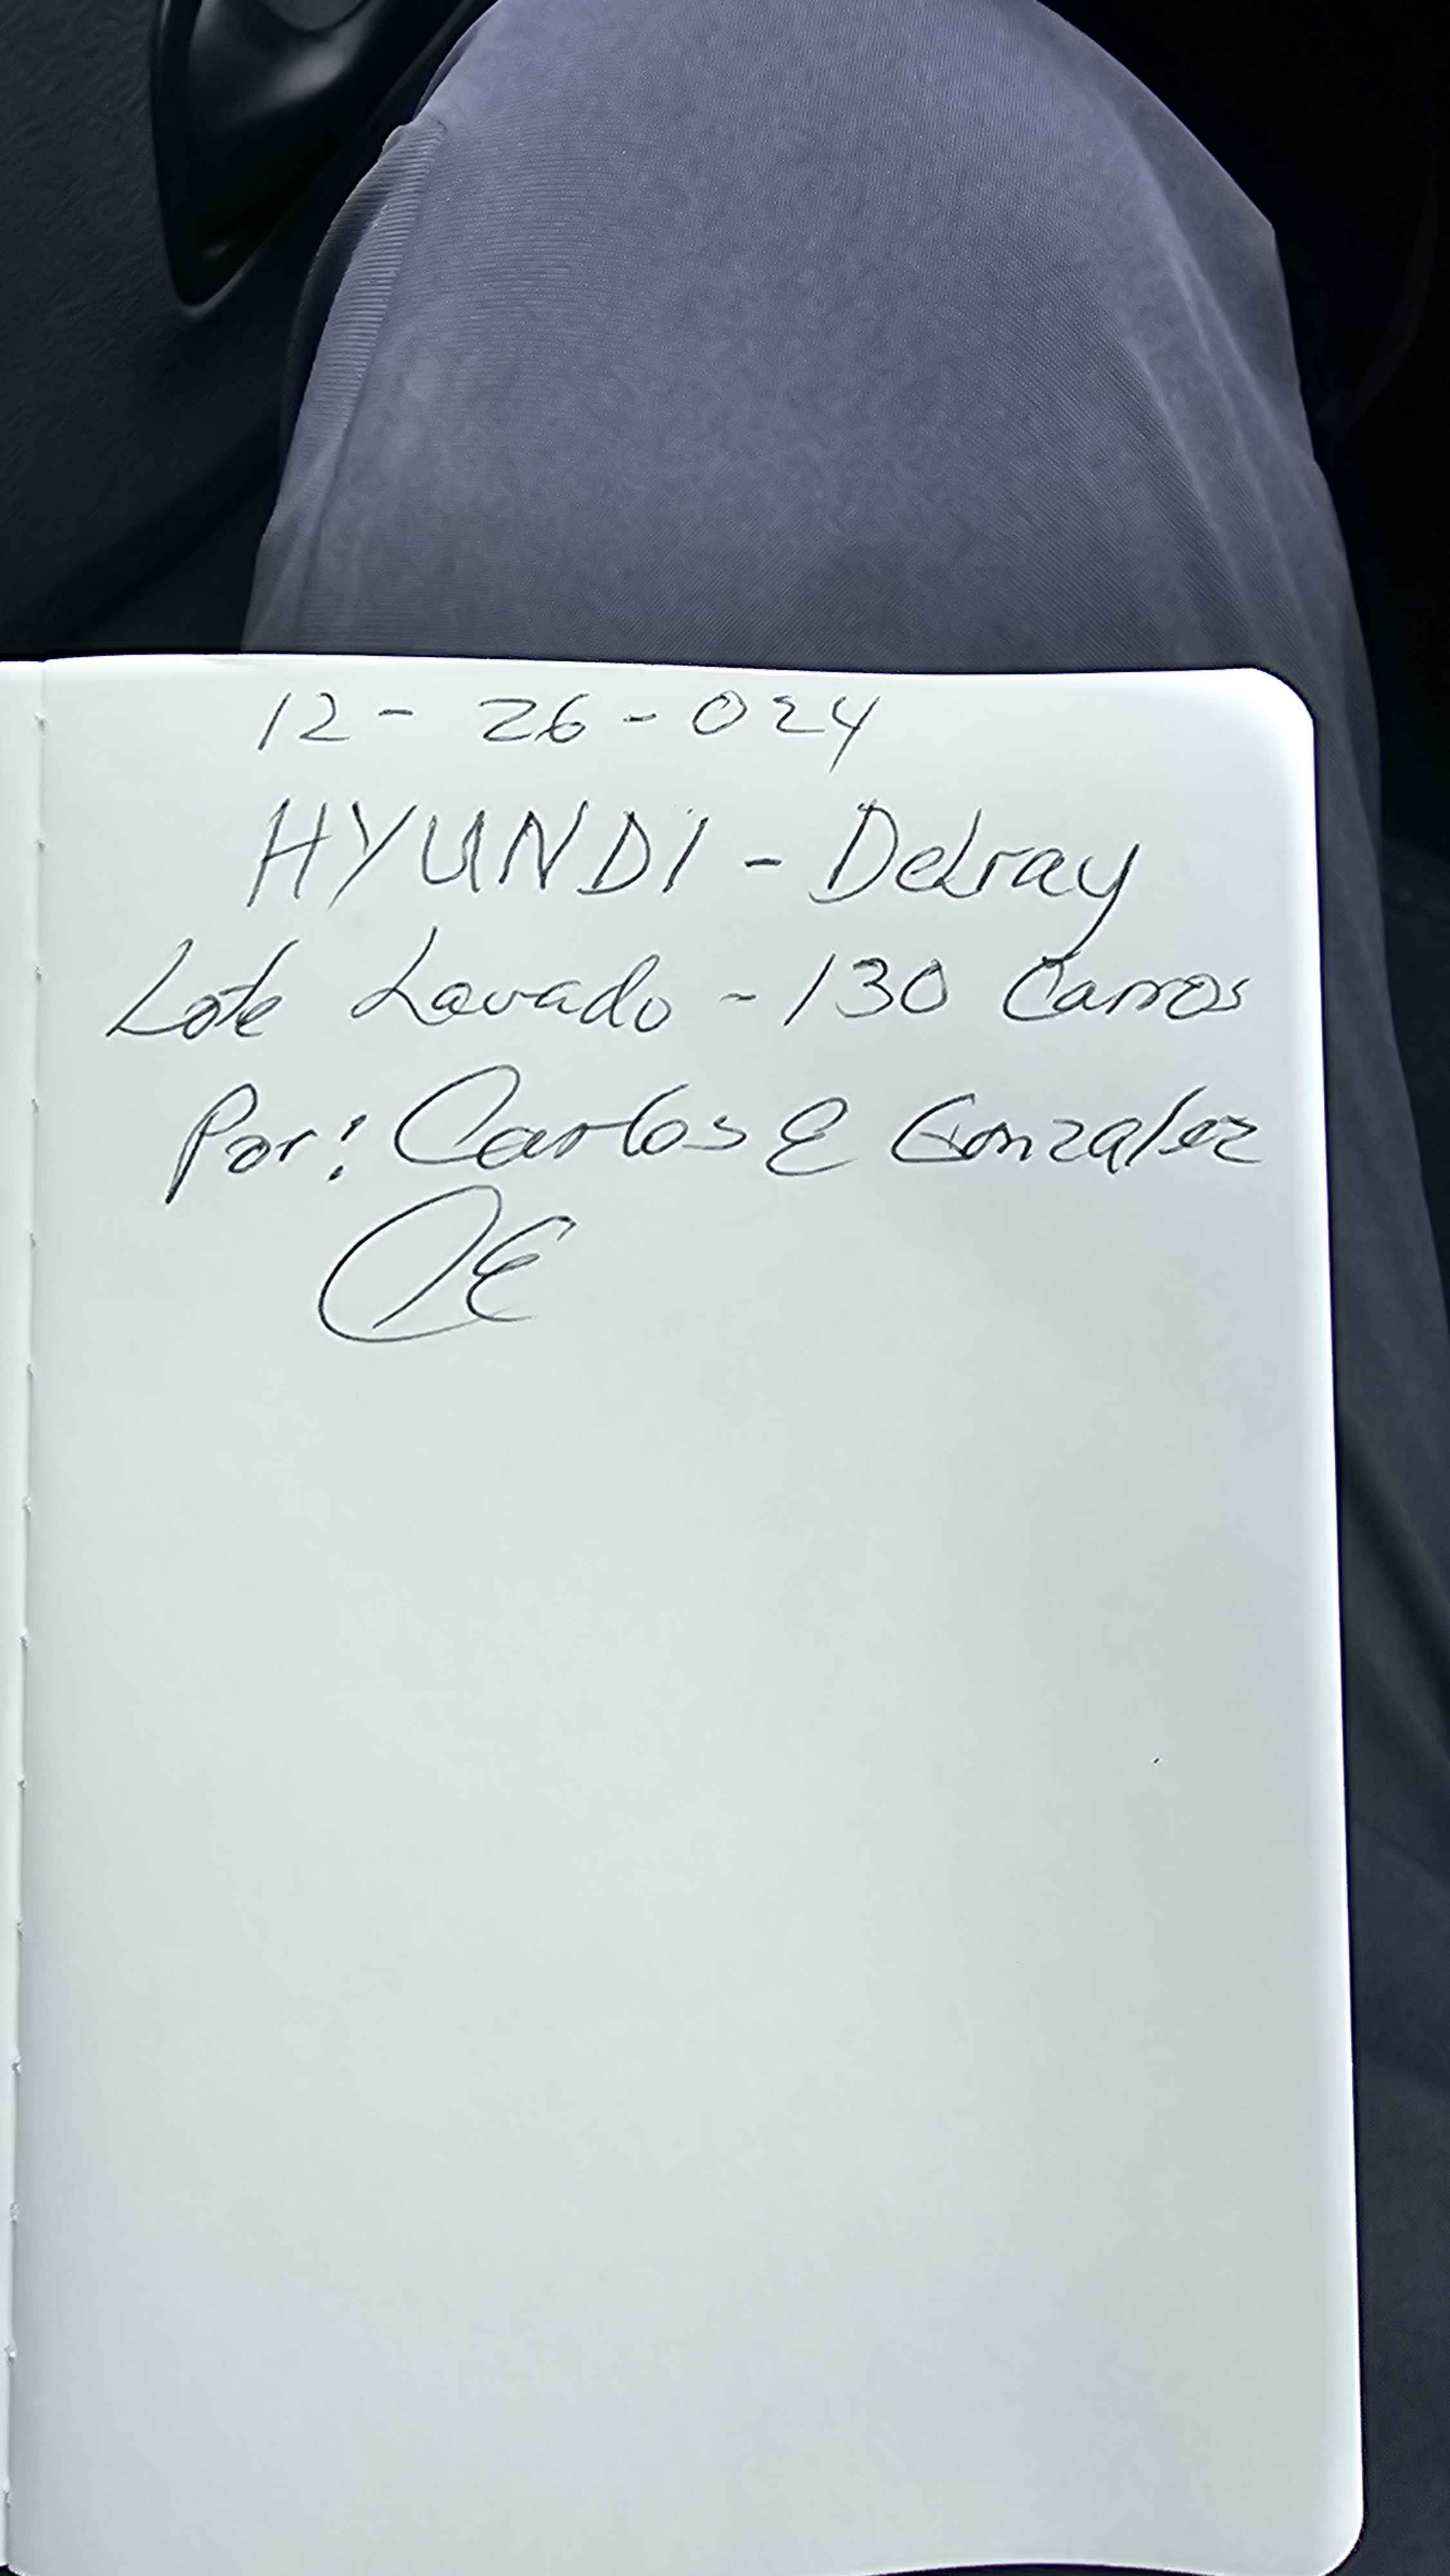 12- 26-024
HYUNDI - Delray
Lote Lavado - 130 Carros
Por: Carlos E Gonzalez
CE